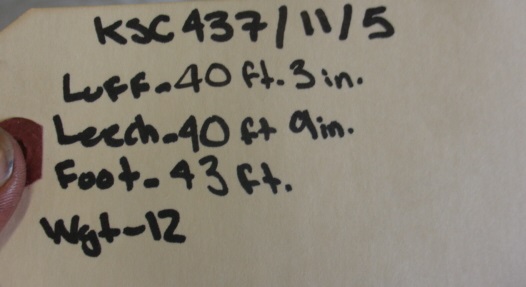 KSC 437/11/5
Luff-40 ft. 3 in.
Leech-40 ft 9in.
Foot-43 ft.
Wgt-12